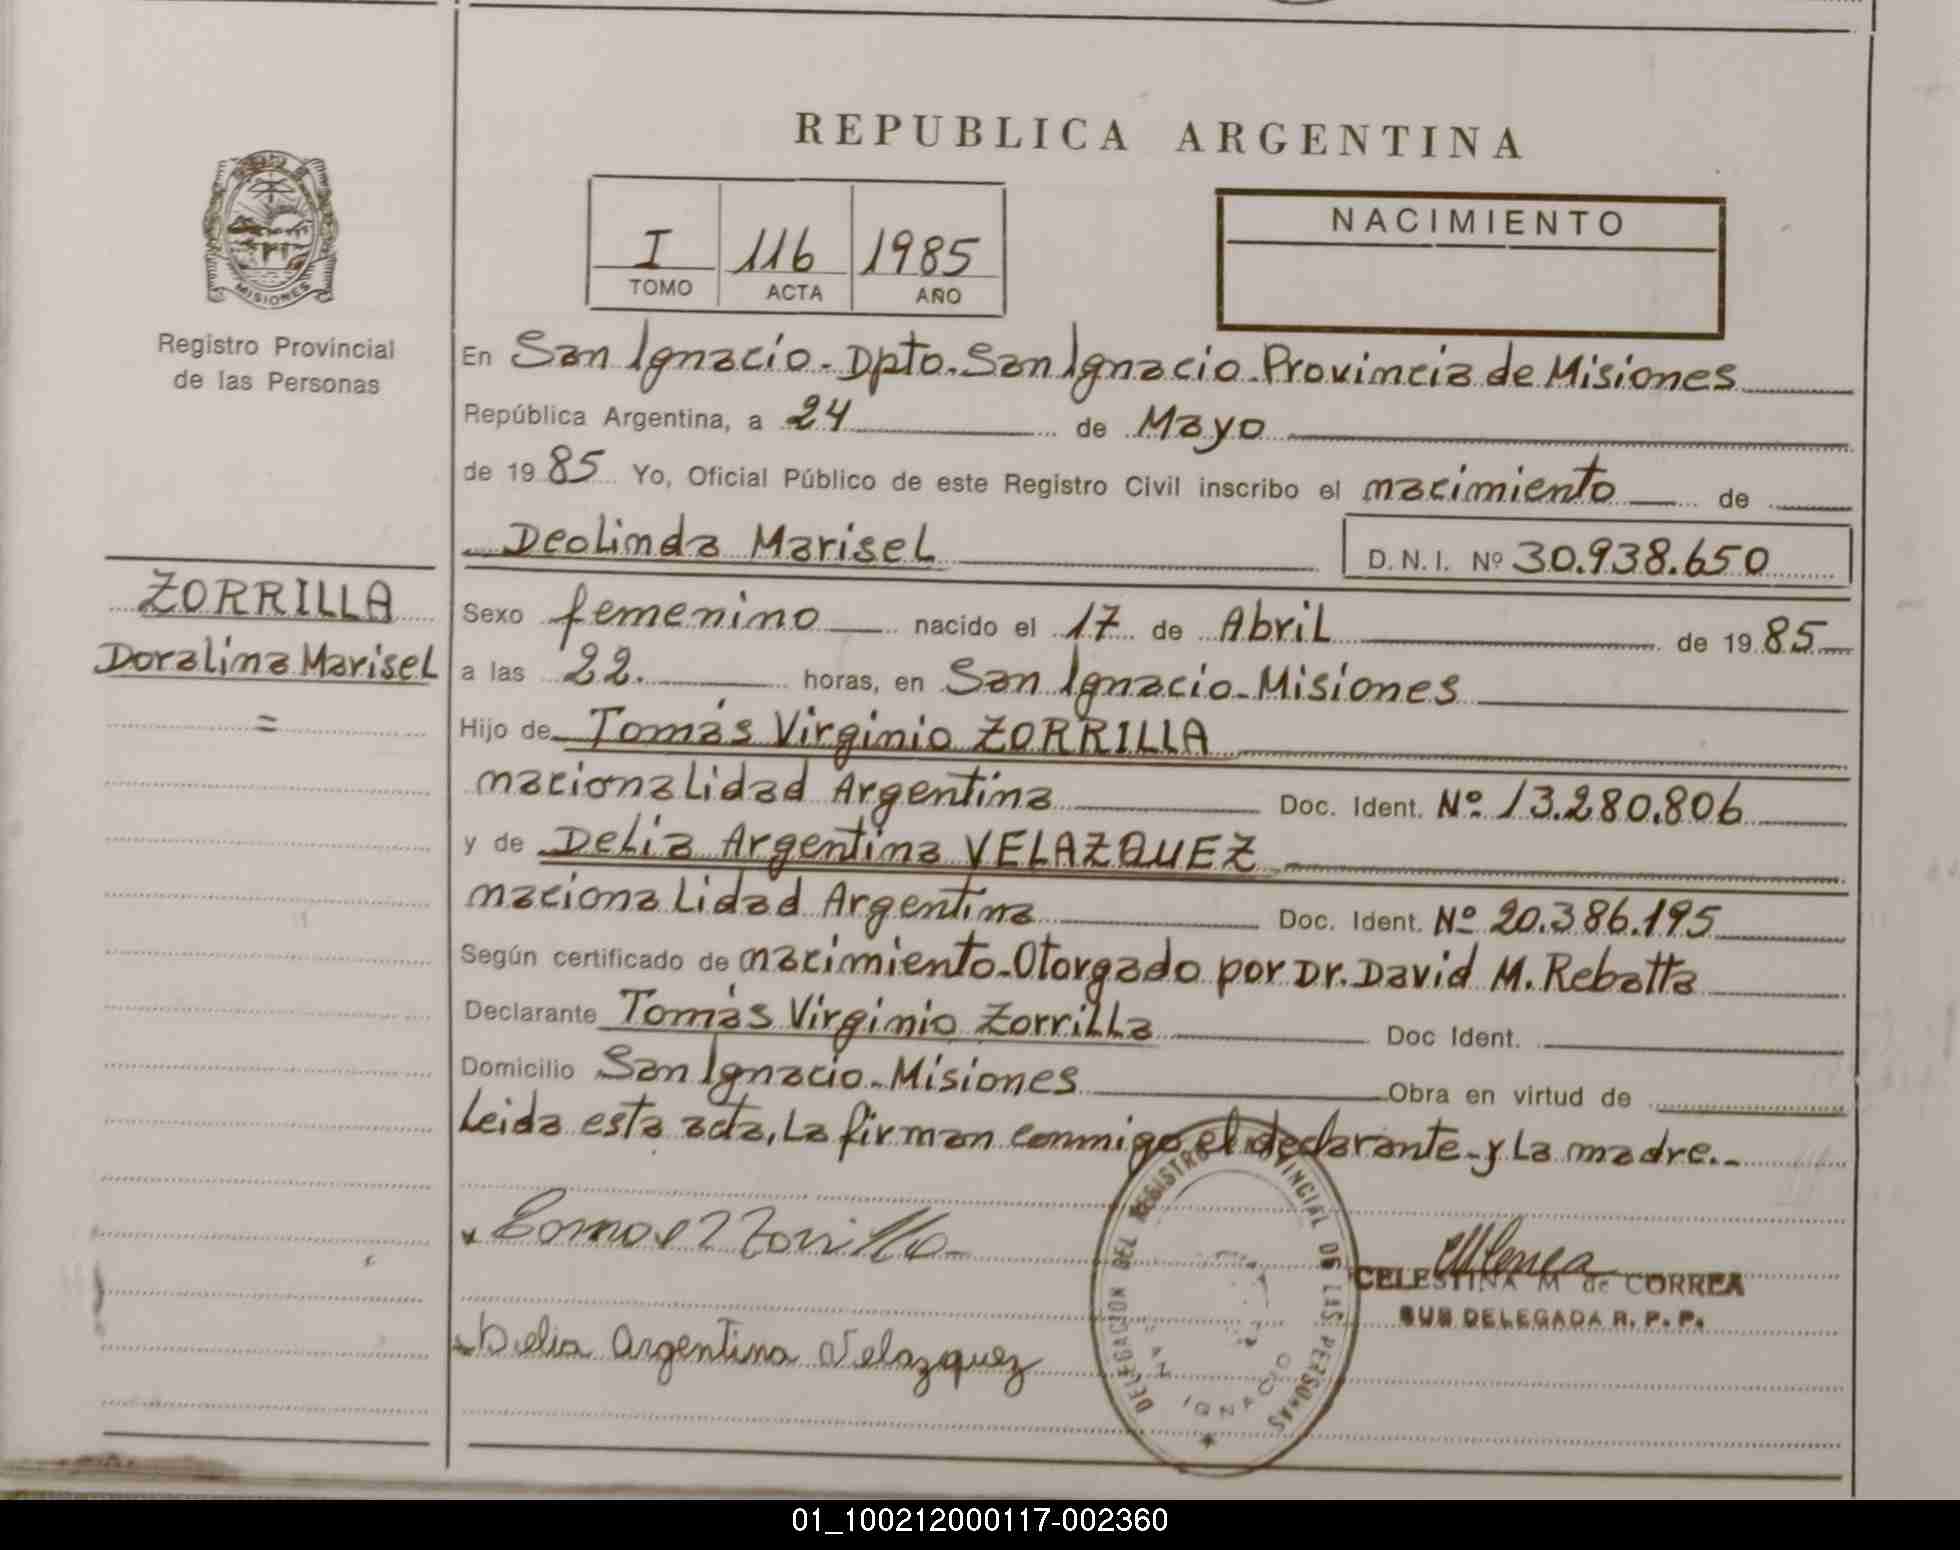 REPUBLICA ARGENTINA
I 116 1985
TOMO ACTA AÑO
NACIMIENTO
MISIONES
Registro Provincial
de las Personas
ZORRILLA
Doralina Marisel
=
En San Ignacio - Dpto. San Ignacio - Provincia de Misiones
República Argentina, a 24 de Mayo
de 1985 Yo, Oficial Público de este Registro Civil inscribo el nacimiento de
Deolinda Marisel D.N.I. Nº 30.938.650
Sexo femenino nacido el 17 de Abril de 1985
a las 22. horas, en San Ignacio - Misiones
Hijo de Tomás Virginio ZORRILLA
nacionalidad Argentina Doc. Ident. Nº 13.280.806
y de Delia Argentina VELAZQUEZ
nacionalidad Argentina Doc. Ident. Nº 20.386.195
Según certificado de nacimiento - Otorgado por Dr. David M. Rebatta
Declarante Tomás Virginio Zorrilla Doc Ident.
Domicilio San Ignacio - Misiones Obra en virtud de
Leida esta acta, la firman conmigo el declarante - y la madre. -
Zorrilla
Delia Argentina Velazquez
DELEGACION DEL REGISTRO PROVINCIAL DE LAS PERSONAS
IGNACIO
CELESTINA M de CORREA
SUB DELEGADA R. P. P.
01_100212000117-002360